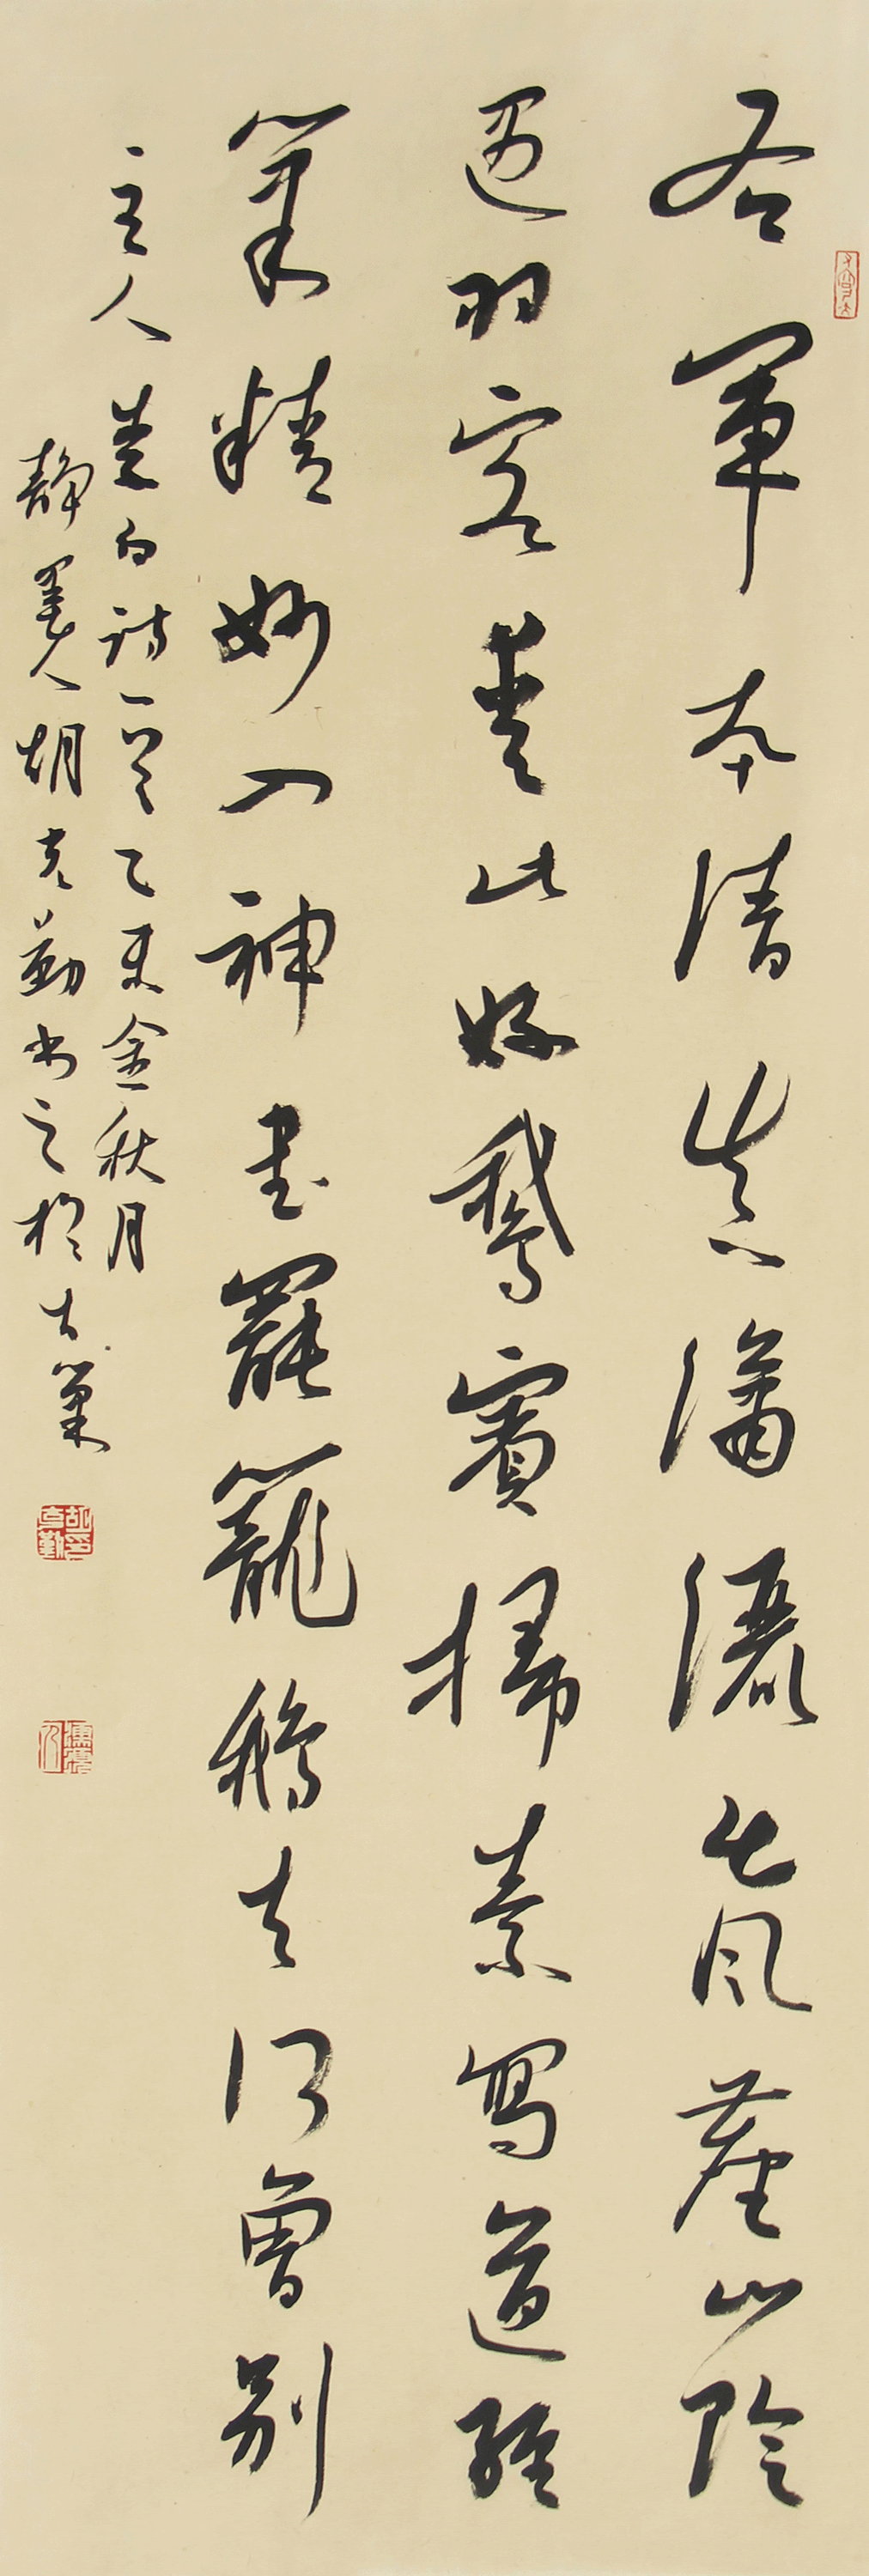 右軍本清真瀟灑出風塵山陰
過羽客愛此好鵝賓掃素寫道經
筆精妙入神書罷籠鵝去何曾別
主人 李白詩一首乙未金秋月
靜墨人胡克勤書之於古巢
胡印克勤